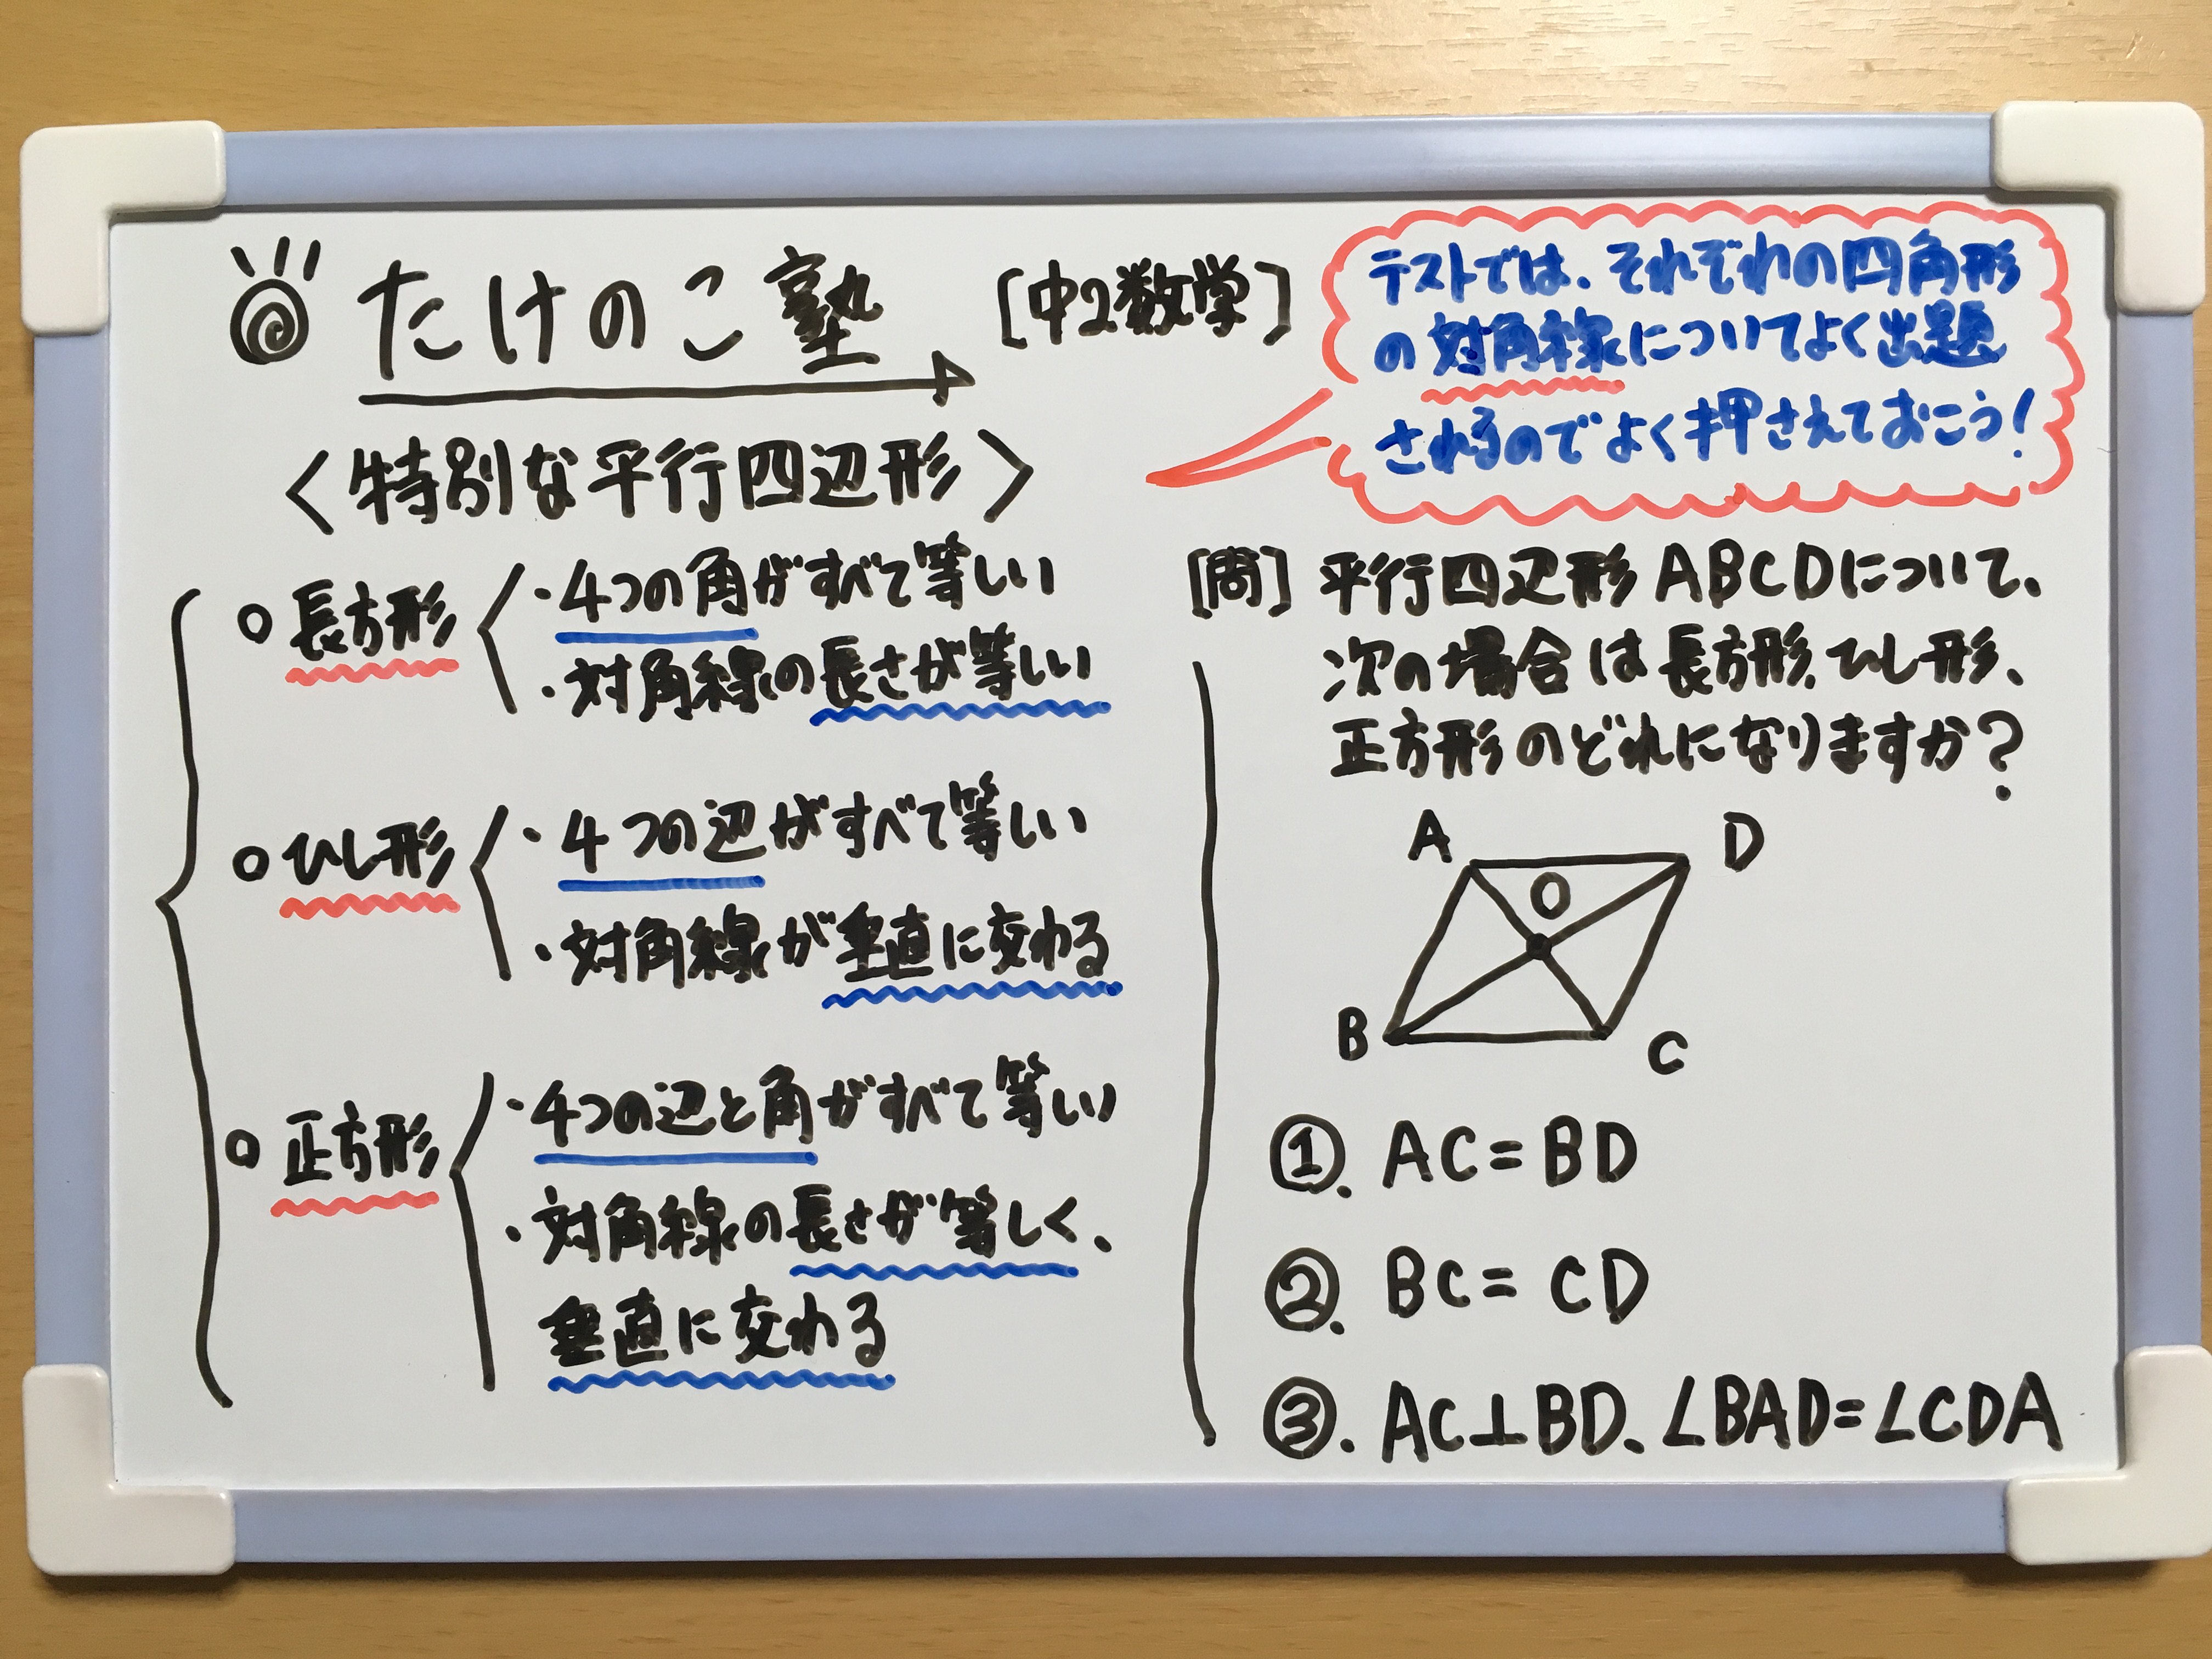 たけのこ塾 [中2数学]
テストでは、それぞれの四角形
の対角線についてよく出題
されるのでよく押さえておこう!
〈特別な平行四辺形〉
○長方形
・4つの角がすべて等しい
・対角線の長さが等しい
○ひし形
・4つの辺がすべて等しい
・対角線が垂直に交わる
○正方形
・4つの辺と角がすべて等しい
・対角線の長さが等しく、
垂直に交わる
[問]平行四辺形ABCDについて、
次の場合は長方形、ひし形、
正方形のどれになりますか?
A D
O
B C
①. AC=BD
②. BC=CD
③. AC⊥BD、∠BAD=∠CDA